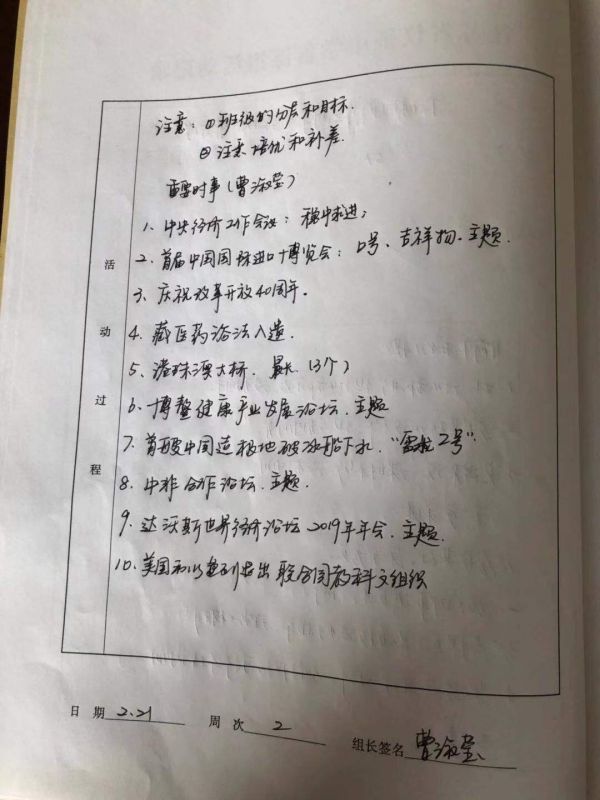 注意：①班级的分层和目标.
②注意培优和补差
重要时事（曹淑莹）
1、中央经济工作会议：稳中求进；
2、首届中国国际进口博览会：口号、吉祥物、主题.
3、庆祝改革开放40周年。
4、藏医药浴法入遗.
5、港珠澳大桥. 最长（3个）
6、博鳌健康产业发展论坛. 主题
7、首艘中国造极地破冰船下水，“雪龙2号”.
8、中非合作论坛. 主题.
9、达沃斯世界经济论坛2019年年会、主题.
10、美国和以色列退出联合国教科文组织
活动过程
日 期 2.21 周 次 2 组长签名 曹淑莹